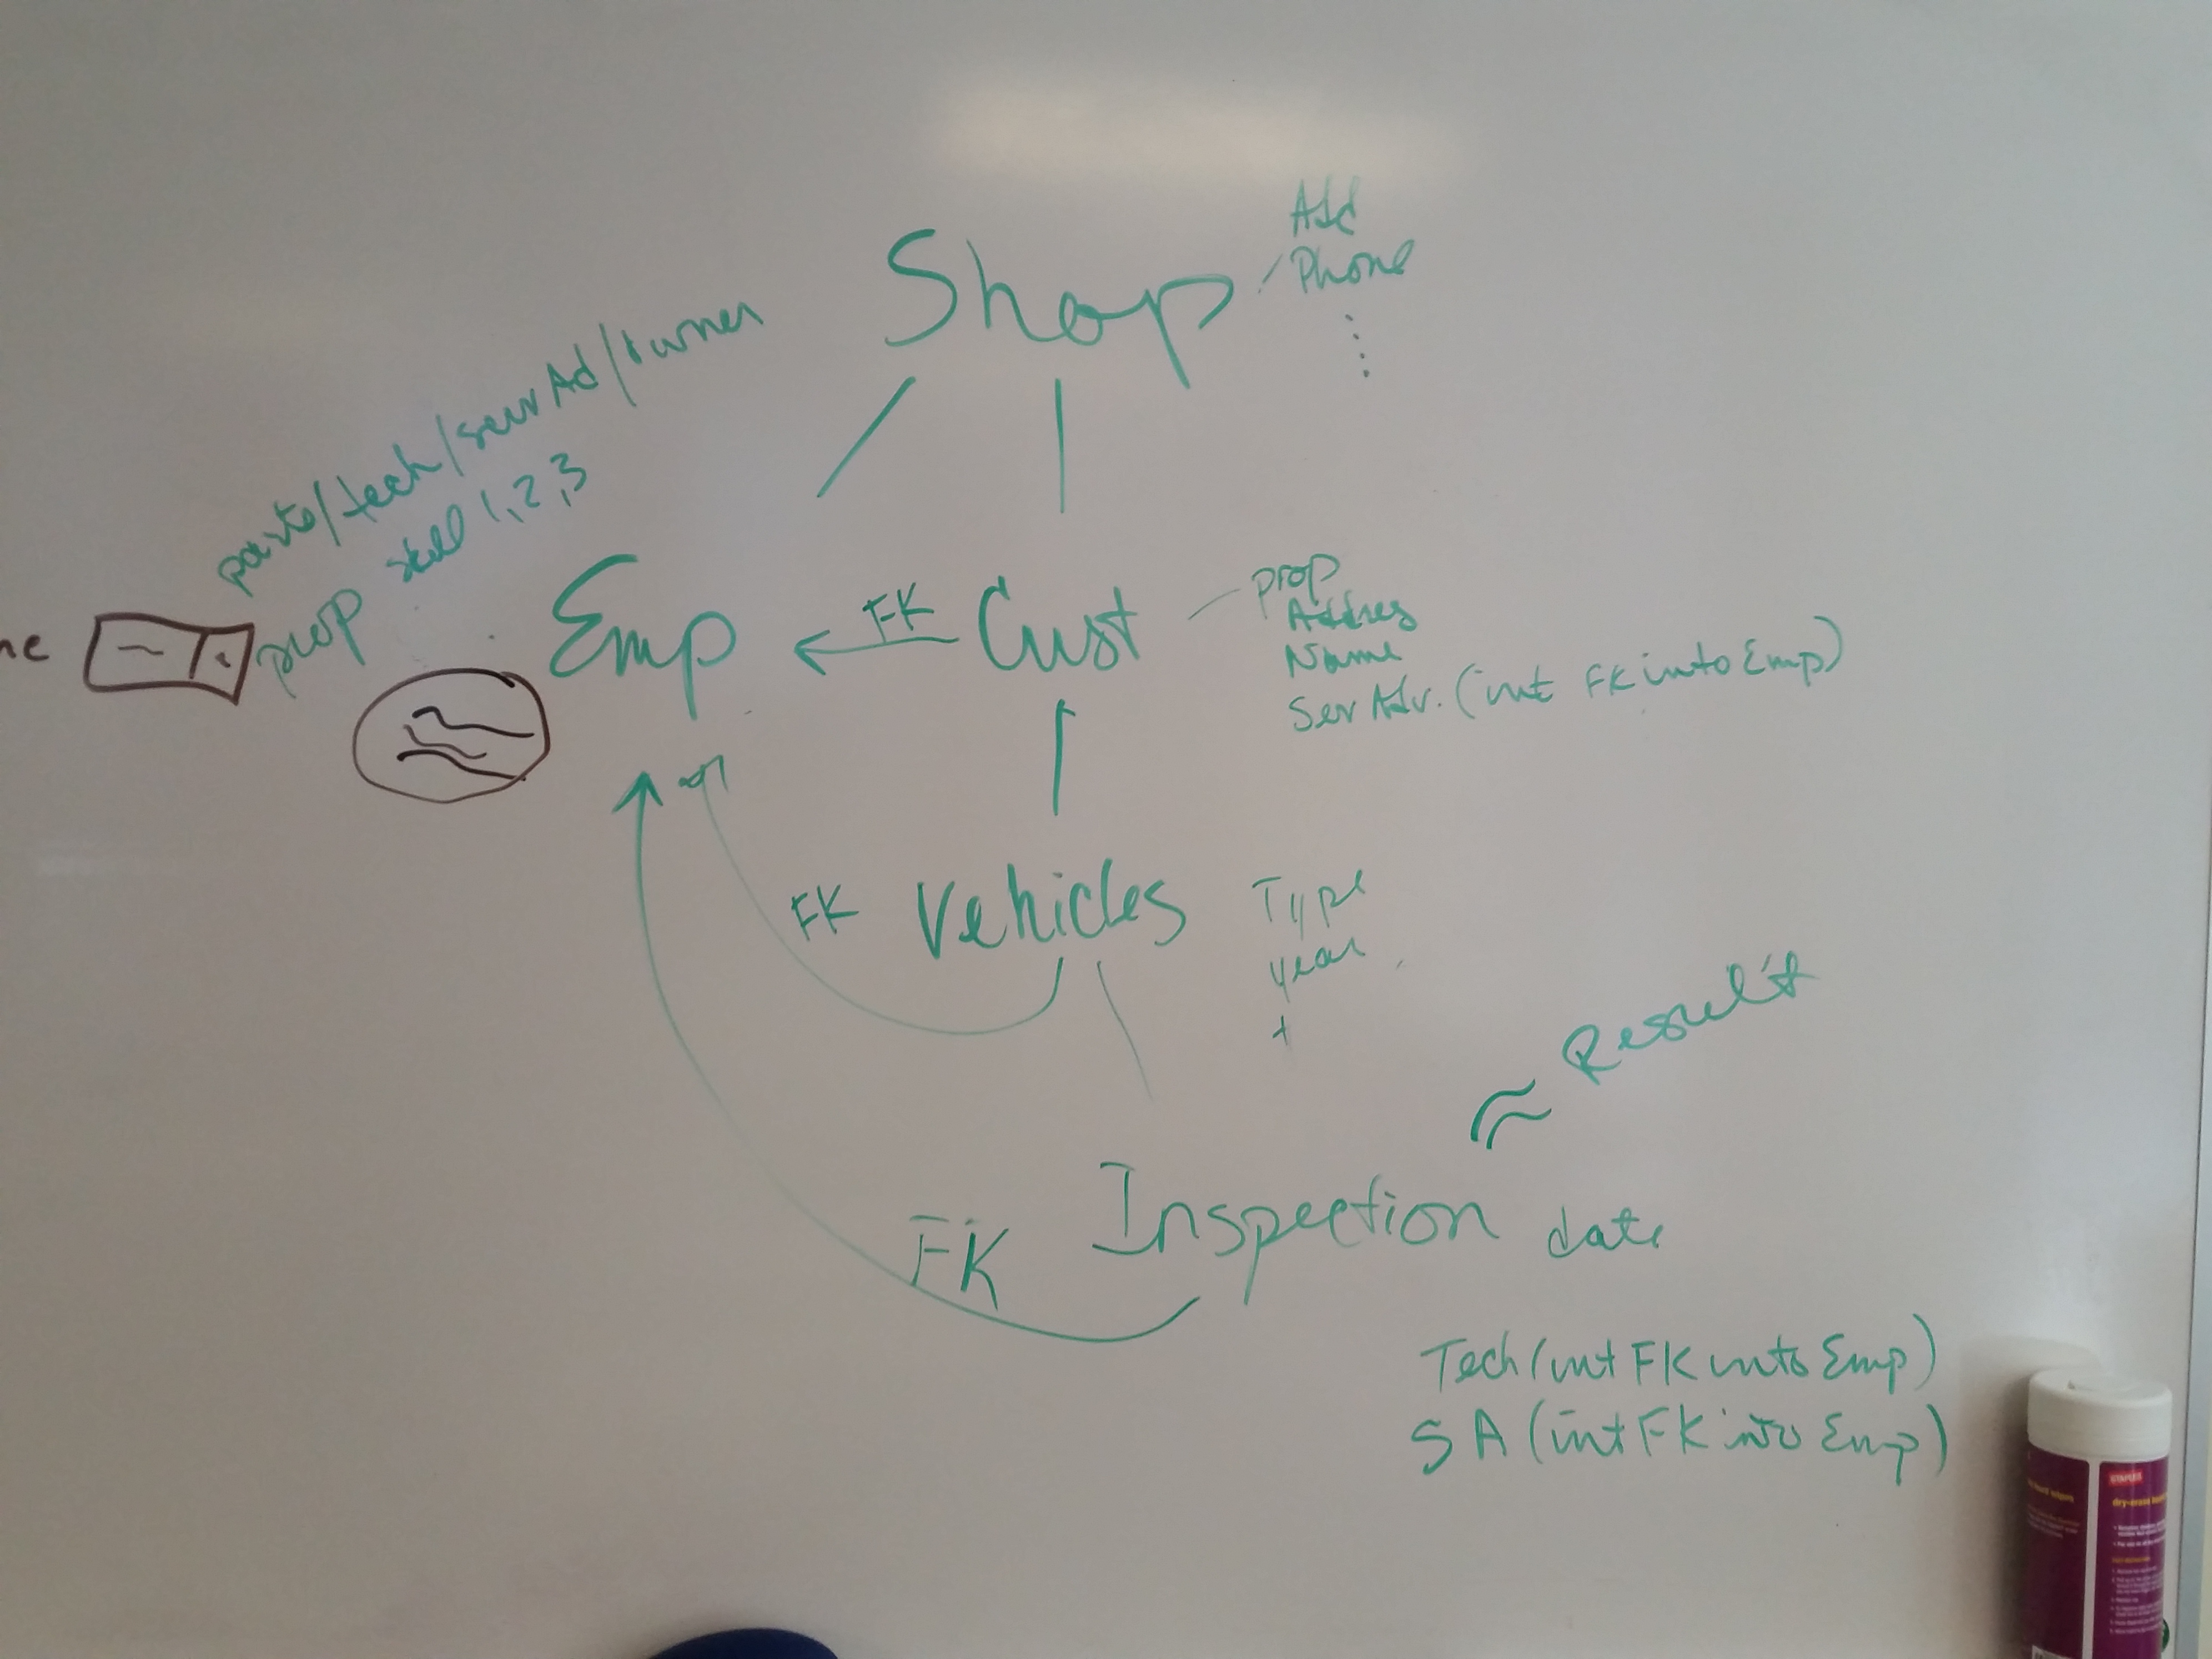 Add
Phone
Shop
parts/tech/servAd/owner
skill 1,2,3
prop
Emp
FK
Cust
prop
Addres
Name
Ser Adv. (int FK into Emp)
FK
Vehicles
Type
year
+
Result
Inspection
date
FK
Tech (int FK into Emp)
SA (int FK into Emp)
STAPLES